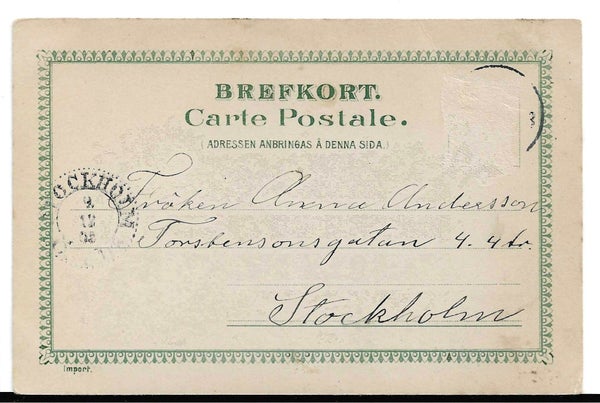 BREFKORT.
Carte Postale.
(ADRESSEN ANBRINGAS Å DENNA SIDA.)
STOCKHOLM
9
12
Fröken Anna Andersson
Torstensonsgatan 4. 4 tr.
Stockholm
Import.